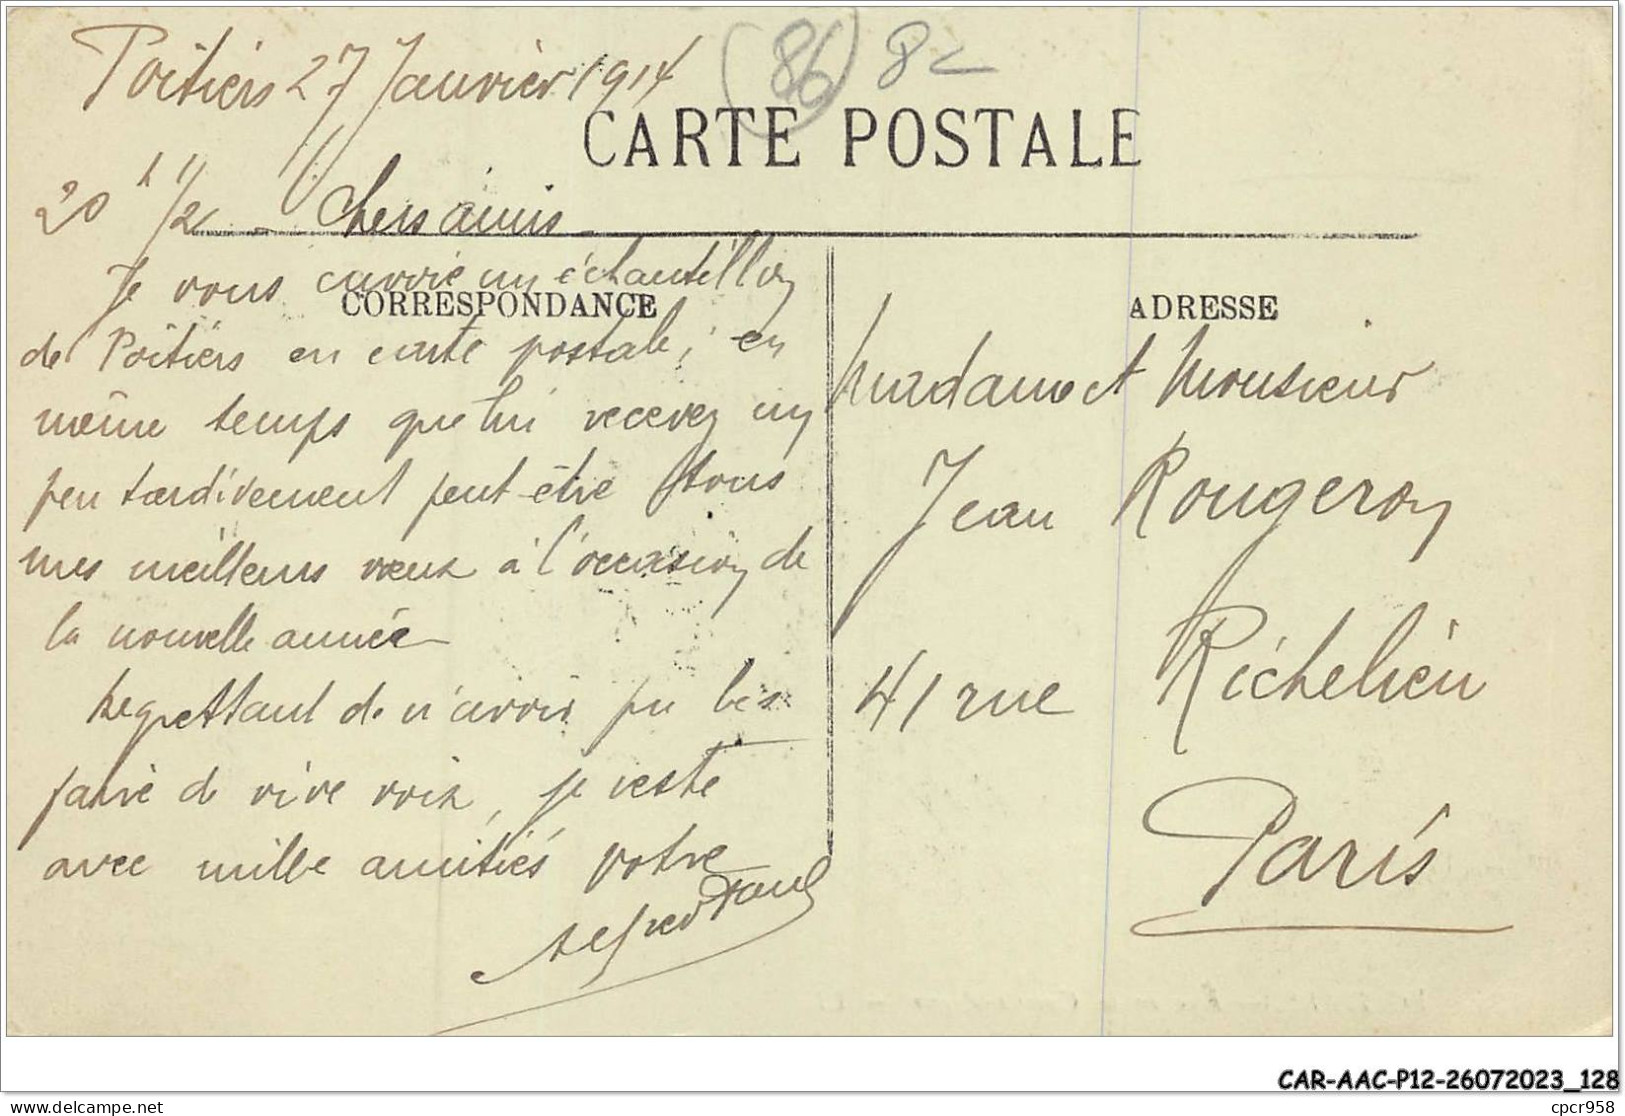 Poitiers 27 Janvier 1914
(86) 8
CARTE POSTALE
20 h 1/2 - Chers amis -
Je vous envoie un échantillon
CORRESPONDANCE
de Poitiers en carte postale ; en
même temps que lui recevez un
peu tardivement peut-être tous
mes meilleurs vœux à l'occasion de
la nouvelle année
Regrettant de n'avoir pu les
faire de vive voix, je reste
avec mille amitiés votre
Alfred Paul
ADRESSE
Madame et Monsieur
Jean Rougeron
41 rue Richelieu
Paris
CAR-AAC-P12-26072023_128
delcampe.net
cpcr958